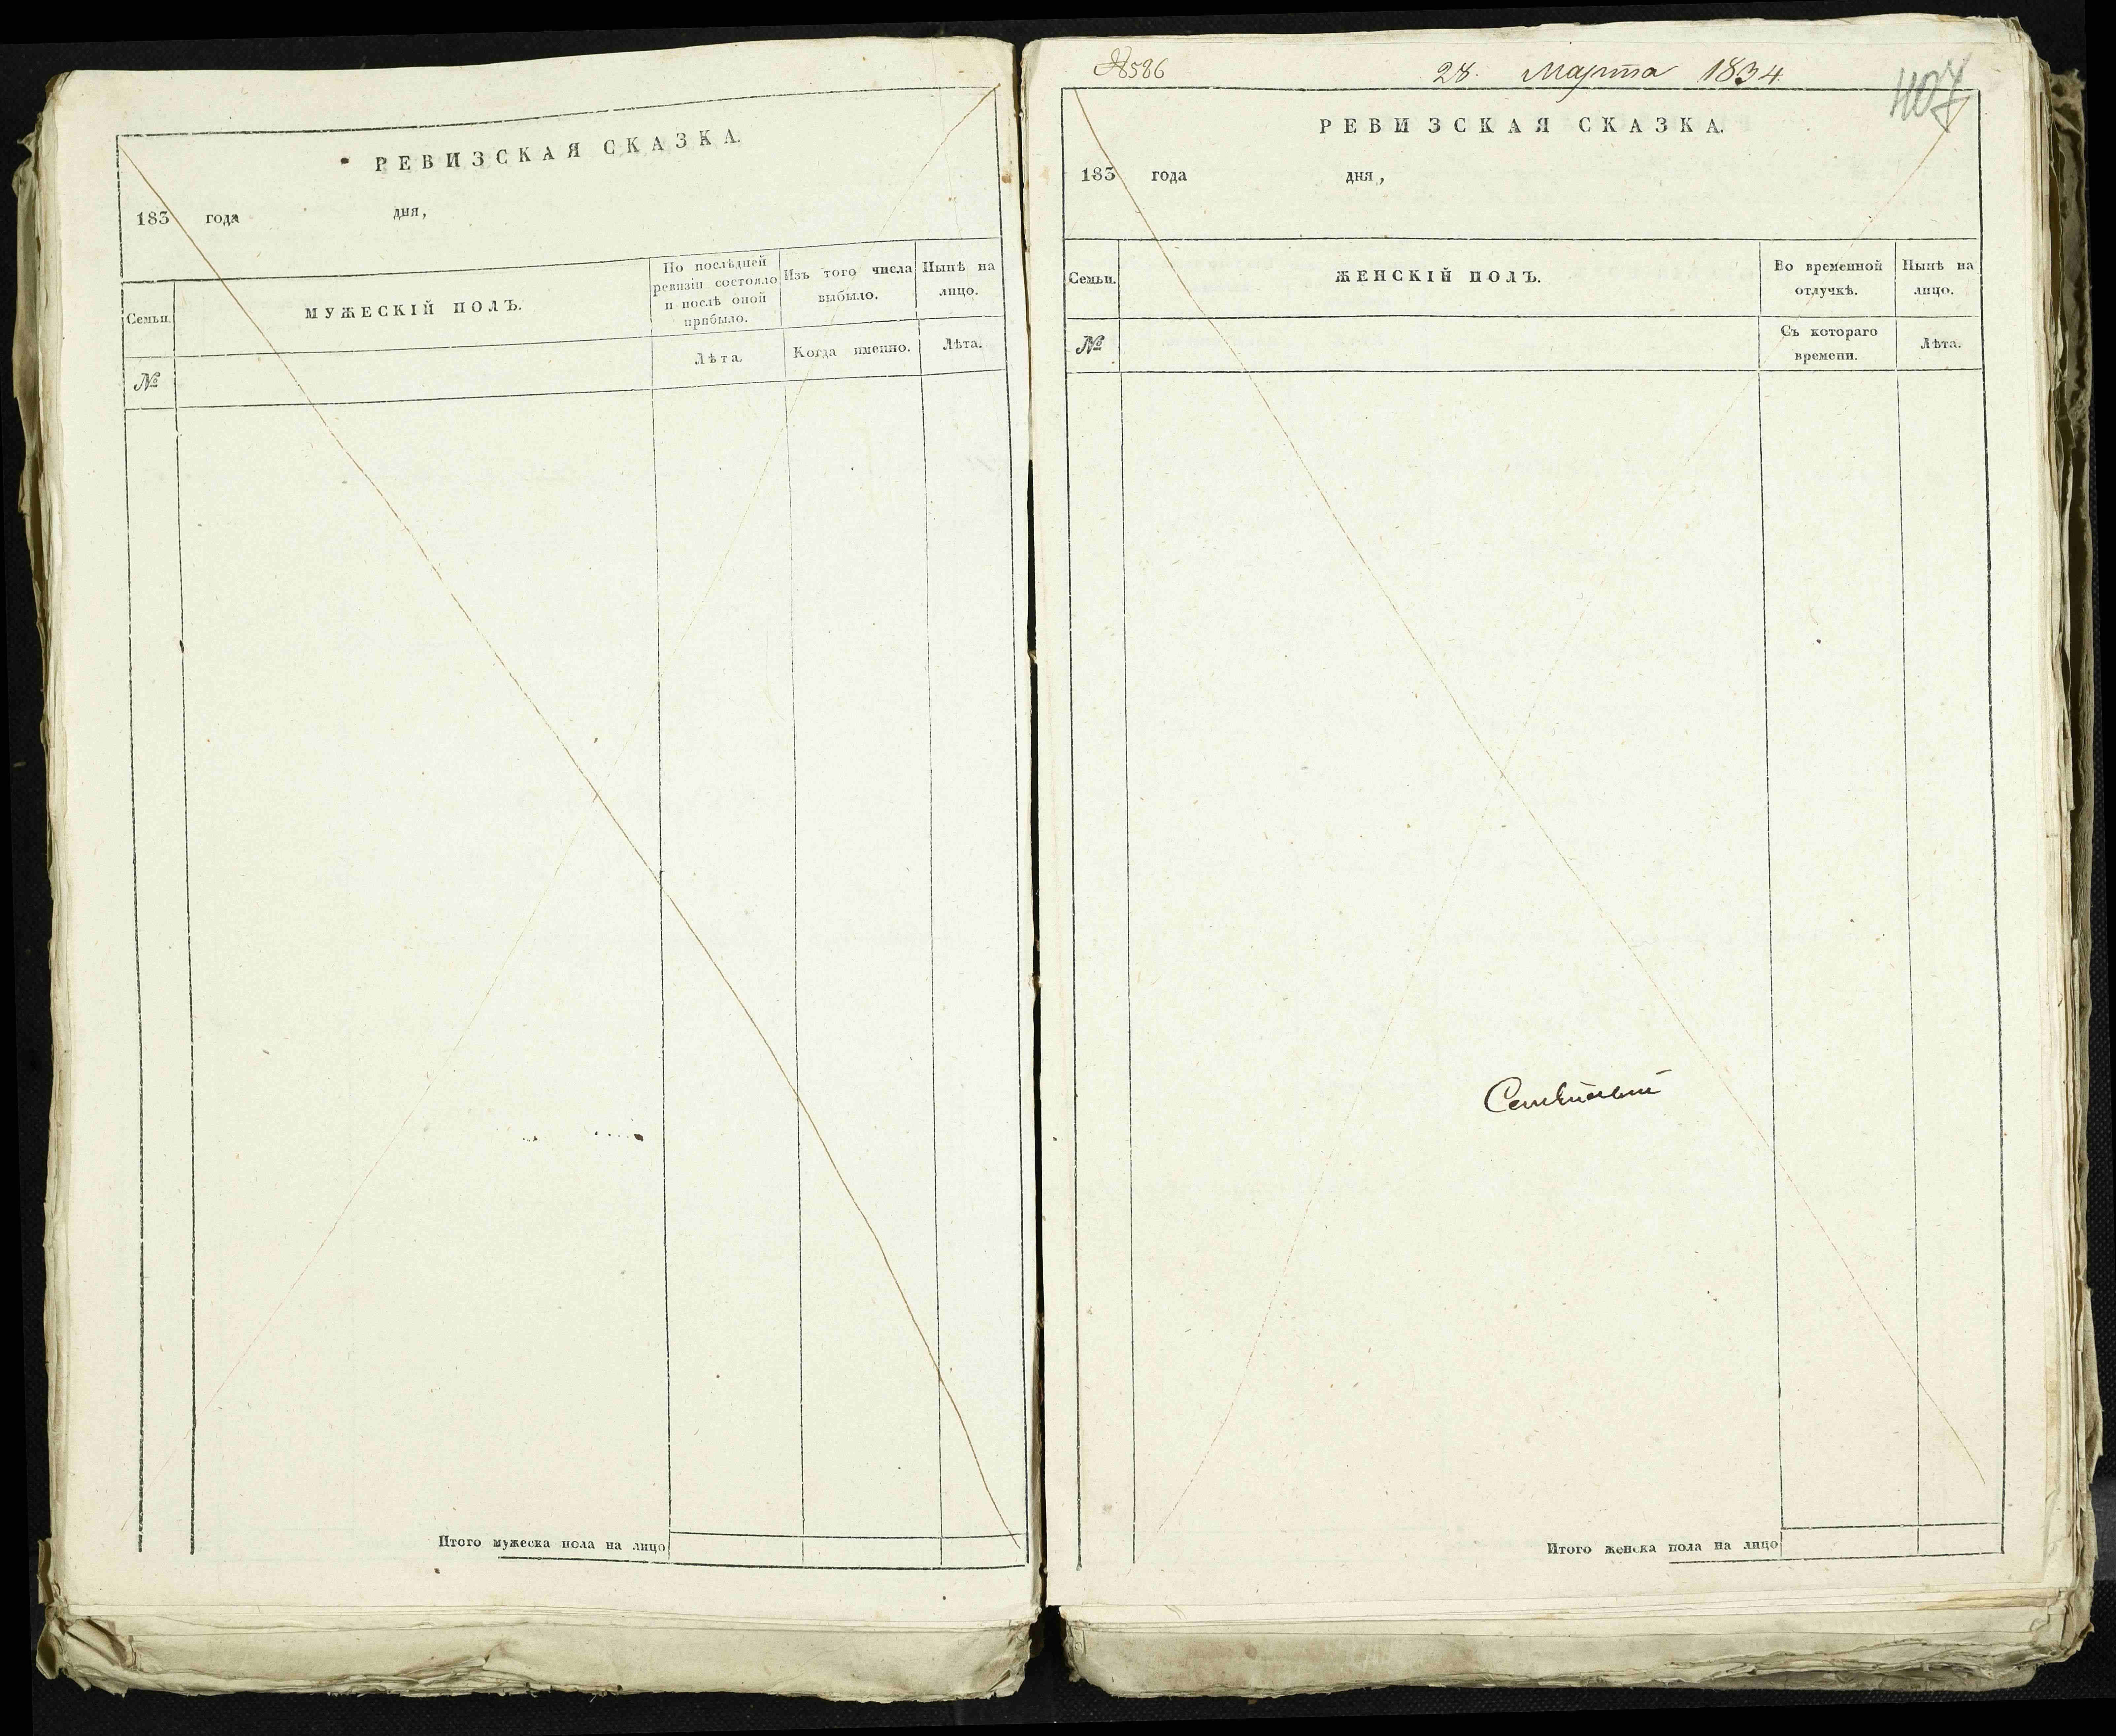 РЕВИЗСКАЯ СКАЗКА.
183 года дня,
Семьи.
МУЖЕСКІЙ ПОЛЪ.
По послѣдней ревизіи состояло и послѣ оной прибыло.
Изъ того числа выбыло.
Нынѣ на лицо.
№
Лѣта.
Когда именно.
Лѣта.
Итого мужеска пола на лицо
№586 28. Марта 1834.
407
РЕВИЗСКАЯ СКАЗКА.
183 года дня,
Семьи.
ЖЕНСКІЙ ПОЛЪ.
Во временной отлучкѣ.
Нынѣ на лицо.
№
Съ котораго времени.
Лѣта.
Итого женска пола на лицо